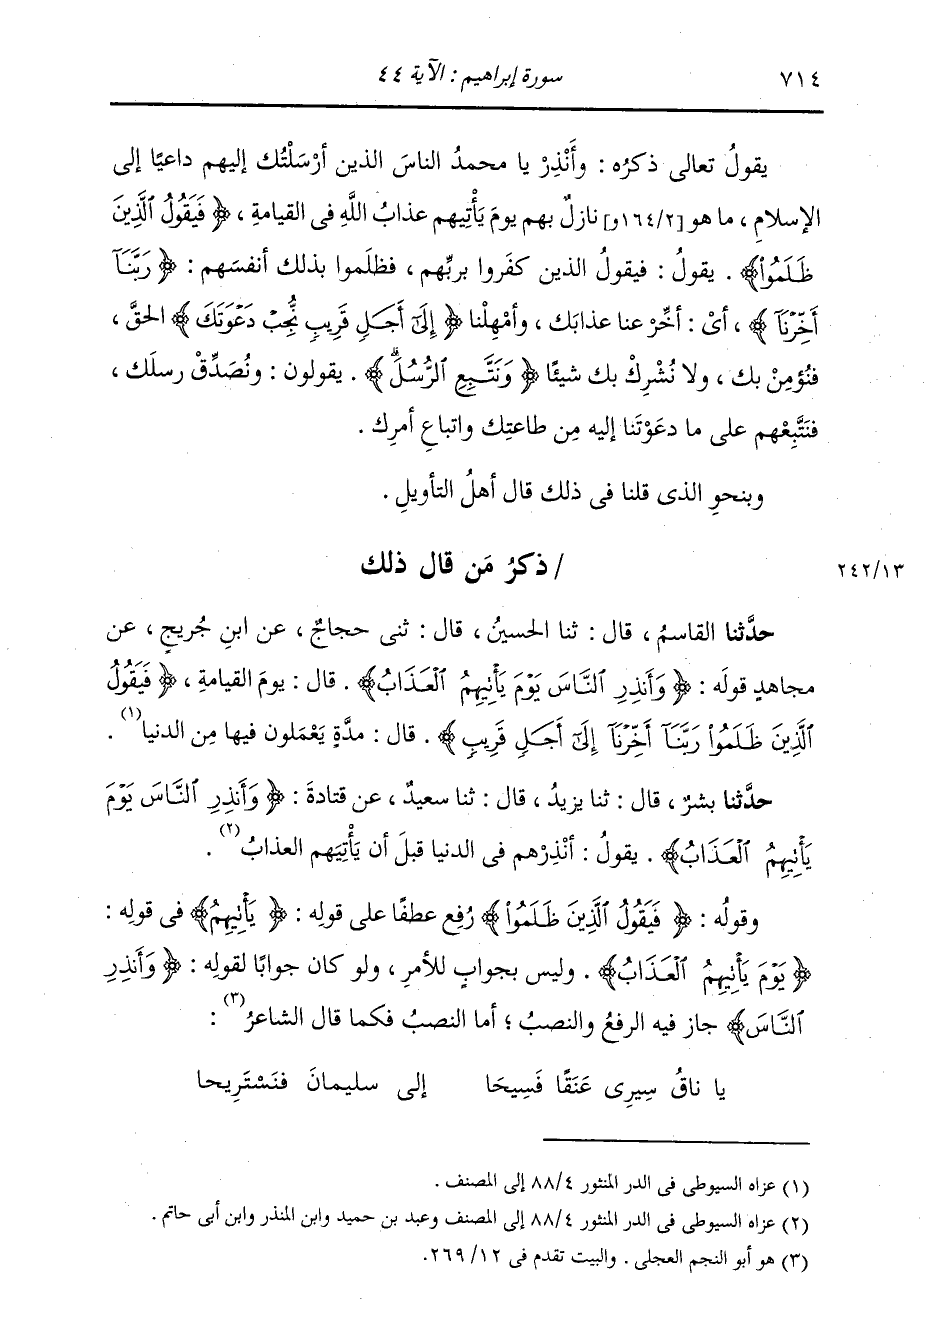 ٧١٤ سورة إبراهيم : الآية ٤٤
يقولُ تعالى ذكرُه : وأَنْذِرْ يا محمدُ الناسَ الذين أرْسَلْتُك إليهم داعيًا إلى
الإسلامِ ، ما هو [١٦٤/٢و] نازلٌ بهم يومَ يَأْتِيهم عذابُ اللَّهِ فى القيامةِ ، ﴿ فَيَقُولُ ٱلَّذِينَ
ظَلَمُواْ﴾ . يقولُ : فيقولُ الذين كفَروا بربِّهم ، فظلَموا بذلك أنفسَهم : ﴿ رَبَّنَآ
أَخِّرْنَآ ﴾ ، أىْ : أخِّرْ عنا عذابَك ، وأمْهِلْنا ﴿ إِلَىٰٓ أَجَلٍ قَرِيبٍ نُّجِبْ دَعْوَتَكَ ﴾ الحقَّ ،
فنُؤمِنْ بك ، ولا نُشْرِكْ بك شيئًا ﴿ وَنَتَّبِعِ ٱلرُّسُلَۗ ﴾ . يقولون : ونُصَدِّقْ رسلَك ،
فنَتَّبِعْهم على ما دعَوْتَنا إليه مِن طاعتِك واتباعِ أمرِك .
وبنحوِ الذى قلنا فى ذلك قال أهلُ التأويلِ .
٢٤٢/١٣ / ذكرُ مَن قال ذلك
حدَّثنا القاسمُ ، قال : ثنا الحسينُ ، قال : ثنى حجاجٌ ، عن ابنِ جُريجٍ ، عن
مجاهدٍ قولَه : ﴿ وَأَنذِرِ ٱلنَّاسَ يَوْمَ يَأْتِيهِمُ ٱلْعَذَابُ﴾ . قال : يومَ القيامةِ ، ﴿ فَيَقُولُ
ٱلَّذِينَ ظَلَمُواْ رَبَّنَآ أَخِّرْنَآ إِلَىٰٓ أَجَلٍ قَرِيبٍ ﴾ . قال : مدَّةٍ يَعْمَلون فيها مِن الدنيا(١) .
حدَّثنا بشرٌ ، قال : ثنا يزيدُ ، قال : ثنا سعيدٌ ، عن قتادةَ : ﴿ وَأَنذِرِ ٱلنَّاسَ يَوْمَ
يَأْتِيهِمُ ٱلْعَذَابُ﴾ . يقولُ : أنْذِرْهم فى الدنيا قبلَ أن يَأْتِيَهم العذابُ(٢) .
وقولُه : ﴿ فَيَقُولُ ٱلَّذِينَ ظَلَمُواْ ﴾ رُفِع عطفًا على قولِه : ﴿ يَأْتِيهِمُ﴾ فى قولِه :
﴿ يَوْمَ يَأْتِيهِمُ ٱلْعَذَابُ﴾ . وليس بجوابٍ للأمرِ ، ولو كان جوابًا لقولِه : ﴿ وَأَنذِرِ
ٱلنَّاسَ﴾ جاز فيه الرفعُ والنصبُ ؛ أما النصبُ فكما قال الشاعرُ(٣) :
يا ناقُ سِيرِى عَنَقًا فَسِيحَا إلى سليمانَ فنَسْتَرِيحا
(١) عزاه السيوطى فى الدر المنثور ٨٨/٤ إلى المصنف .
(٢) عزاه السيوطى فى الدر المنثور ٨٨/٤ إلى المصنف وعبد بن حميد وابن المنذر وابن أبى حاتم .
(٣) هو أبو النجم العجلى . والبيت تقدم فى ١٢/ ٢٦٩.